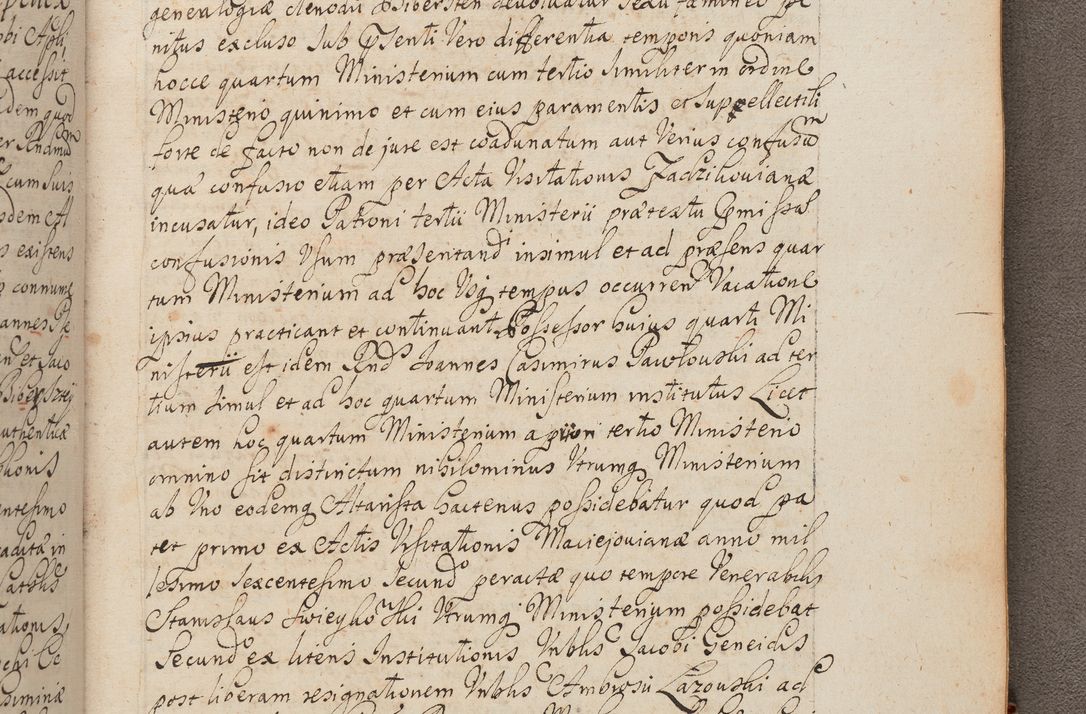 genealogiæ clenodii Bibersten devolvatur sexu fæmineo pe
nitus excluso sub Psenti Vero differentia temporis quoniam
hocce quartum Ministerium cum tertio similiter in ordine
Ministerio quinimo et cum eius paramentis et suppellectili
forte de facto non de jure est coadunatum aut Verius confusum
quæ confusio etiam per Acta Visitationis Zadzikovianæ
incusatur, ideo Patroni tertii Ministerii prætextu Pmissæ
confusionis Usum præsentandi insimul et ad præsens quar
tum Ministerium ad hoc Usq tempus occurren Vacatione
ipsius practicant et continuant Possessor huius quarti Mi
nisterii est idem Rnds Joannes Casimirus Pawłouski ad ter
tium simul et ad hoc quartum Ministerium institutus Licet
autem hoc quartum Ministerium a priori tertio Ministerio
omnino sit distinctum nihilominus Utrumq Ministerium
ab Uno eodemq Altarista hactenus possidebatur quod pa
tet primo ex Actis Visitationis Maciejovianæ anno mil
lesimo sexcentesimo secundo peractæ quo tempore Venerabilis
Stanislaus Utrumq Ministerium possidebat
Secundo ex literis Institutionis Nobilis Jacobi Geneidis
post liberam resignationem Nobilis Ambrosii Łazouski ad

obi Apli
accessit
dem quod
er Rndmum
cum suis
odem Al
existens
connume
annes Pe
et Jaco
authenticæ
thoris
entesimo
in
ationis,